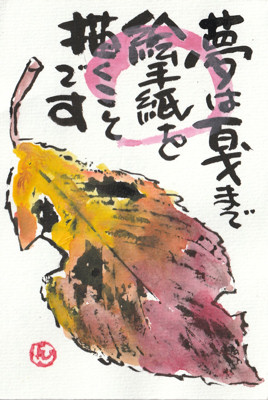 夢は百才まで
絵手紙を
描くこと
です